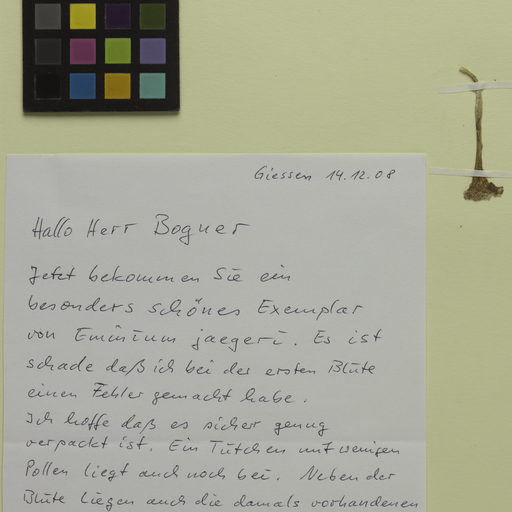 Giessen 14.12.08
Hallo Herr Bogner
Jetzt bekommen Sie ein
besonders schönes Exemplar
von Eminium jaegeri. Es ist
schade daß ich bei der ersten Blüte
einen Fehler gemacht habe.
Ich hoffe daß es sicher genug
verpackt ist. Ein Tütchen mit wenigen
Pollen liegt auch noch bei. Neben der
Blüte liegen auch die damals vorhandenen